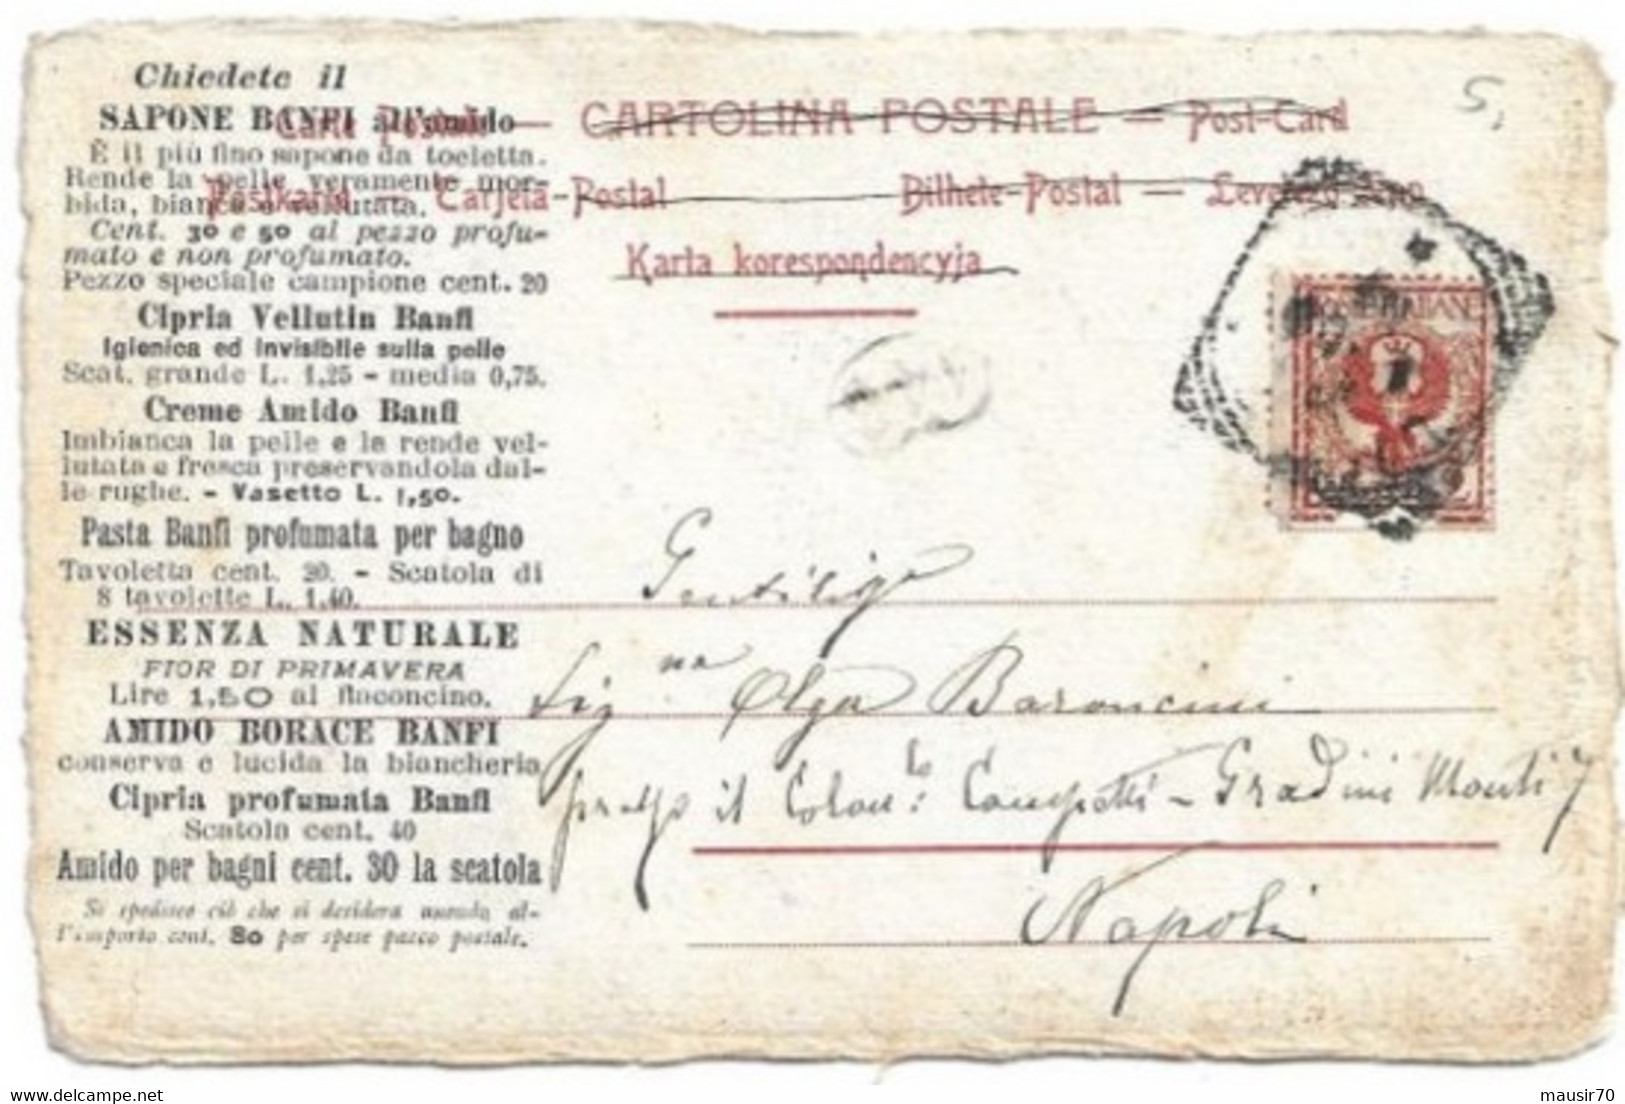 Chiedete il
SAPONE BANFI all'amido
È il più fino sapone da toeletta.
Rende la pelle veramente mor-
bida, bianca e vellutata.
Cent. 30 e 50 al pezzo profu-
mato e non profumato.
Pezzo speciale campione cent. 20
Cipria Vellutin Banfi
Igienica ed invisibile sulla pelle
Scat. grande L. 1,25 - media 0,75.
Creme Amido Banfi
Imbianca la pelle e le rende vel-
lutata e fresca preservandola dal-
le rughe. - Vasetto L. 1,50.
Pasta Banfi profumata per bagno
Tavoletta cent. 20. - Scatola di
8 tavolette L. 1.40.
ESSENZA NATURALE
FIOR DI PRIMAVERA
Lire 1,50 al flaconcino.
AMIDO BORACE BANFI
conserva e lucida la biancheria
Cipria profumata Banfi
Scatola cent. 40
Amido per bagni cent. 30 la scatola
Si spedisce ciò che si desidera unendo al-
l'importo cent. 80 per spese pacco postale.
Carte Postale — CARTOLINA POSTALE — Post-Card
Postkarte — Carjeta-Postal Bilhete-Postal — Levelező-Lap
Karta korespondencyja
5,
Gentilig
Sig na Olga Baroncini
presso il Colon. lo - Gradini Monti 7
Napoli
mausir70